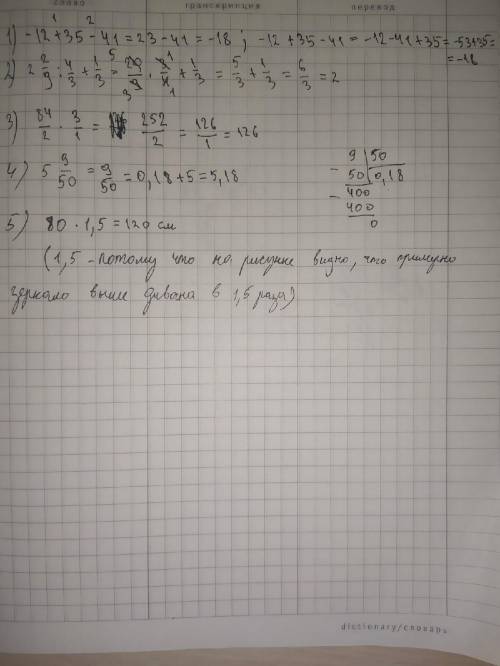 слово транскрипция перевод
1 2
1) -12+35-41=23-41=-18; -12+35-41=-12-41+35=-53+35=
=-18
2) 2 2/9 : 4/3 + 1/3 = 20/9 · 3/4 + 1/3 = 5/3 + 1/3 = 6/3 = 2
3) 84/2 · 3/1 = 252/2 = 126/1 = 126
4) 5 9/50 = 9/50 = 0,18+5=5,18
9 |50
- 50 |0,18
- 400
400
0
5) 80 · 1,5 = 120 см
(1,5 - потому что на рисунке видно, что примерно
зеркало выше дивана в 1,5 раза)
dictionary/словарь